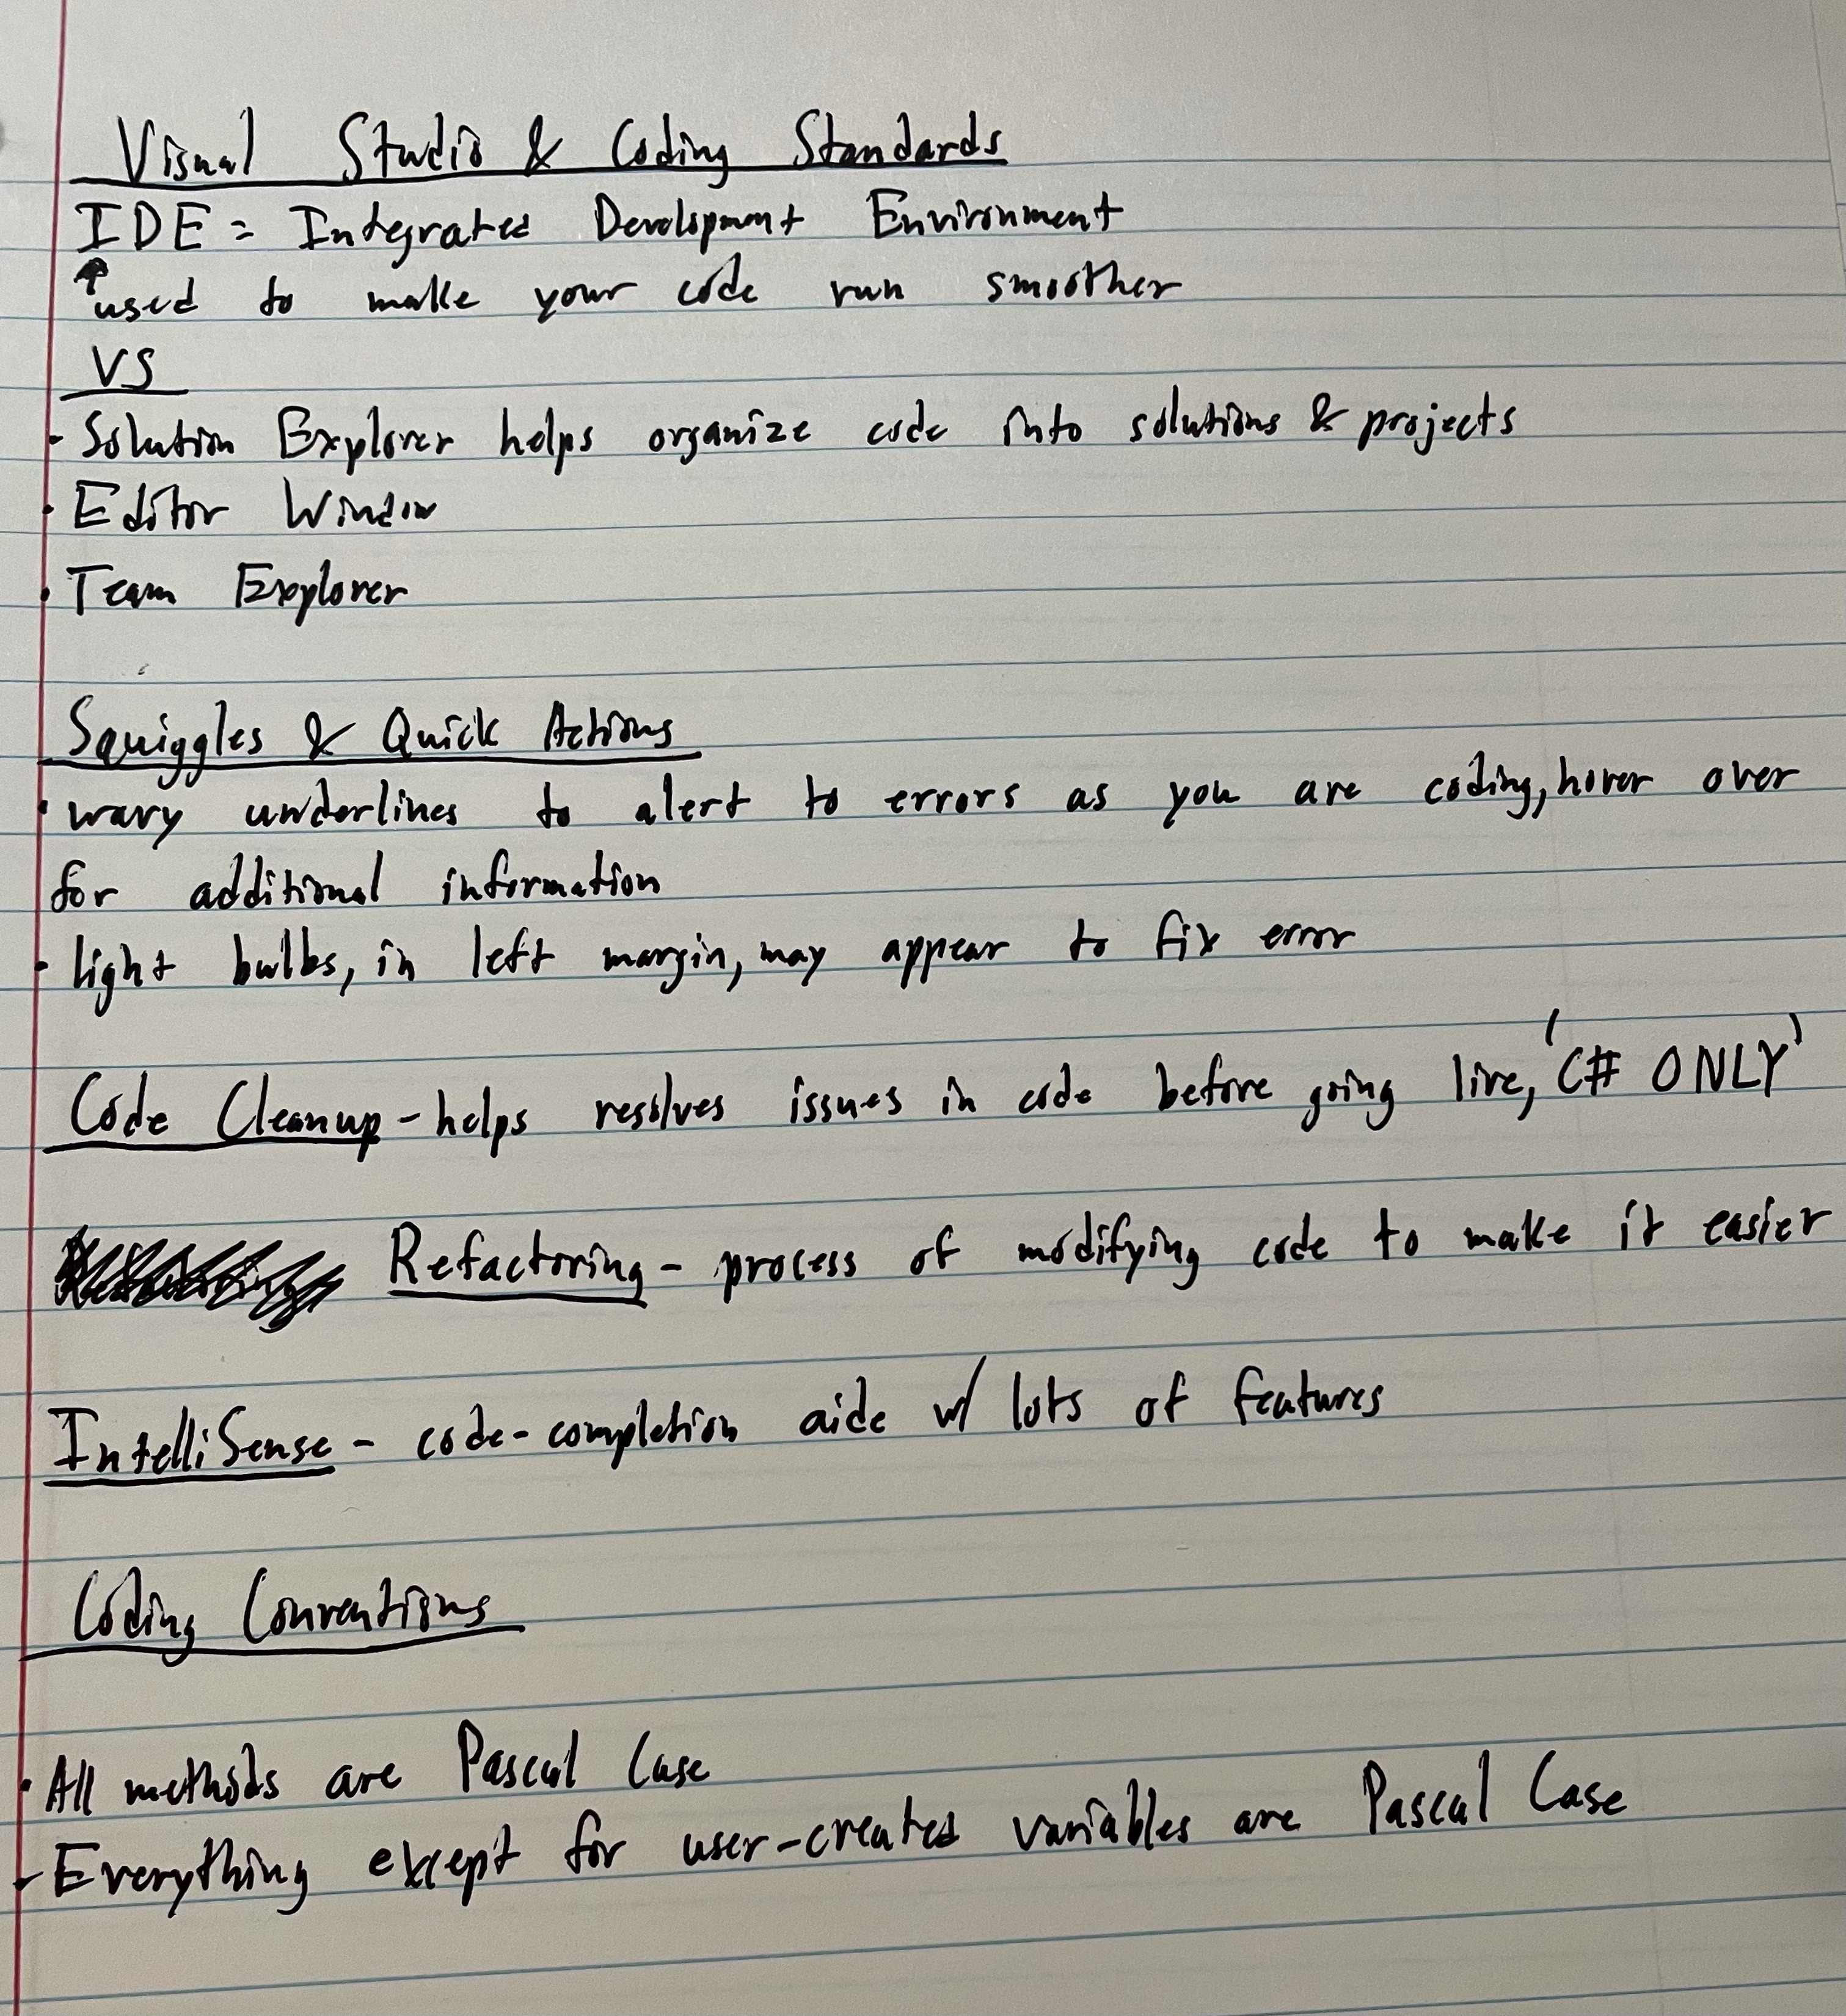 Visual Studio & Coding Standards
IDE = Integrated Development Environment
↑ used to make your code run smoother
VS
- Solution Explorer helps organize code into solutions & projects
· Editor Window
· Team Explorer
Squiggles & Quick Actions
· wavy underlines to alert to errors as you are coding, hover over
for additional information
· light bulbs, in left margin, may appear to fix error
Code Cleanup - helps resolves issues in code before going live, (C# ONLY)
Refactoring - process of modifying code to make it easier
IntelliSense - code-completion aide w/ lots of features
Coding Conventions
· All methods are Pascal Case
- Everything except for user-created variables are Pascal Case